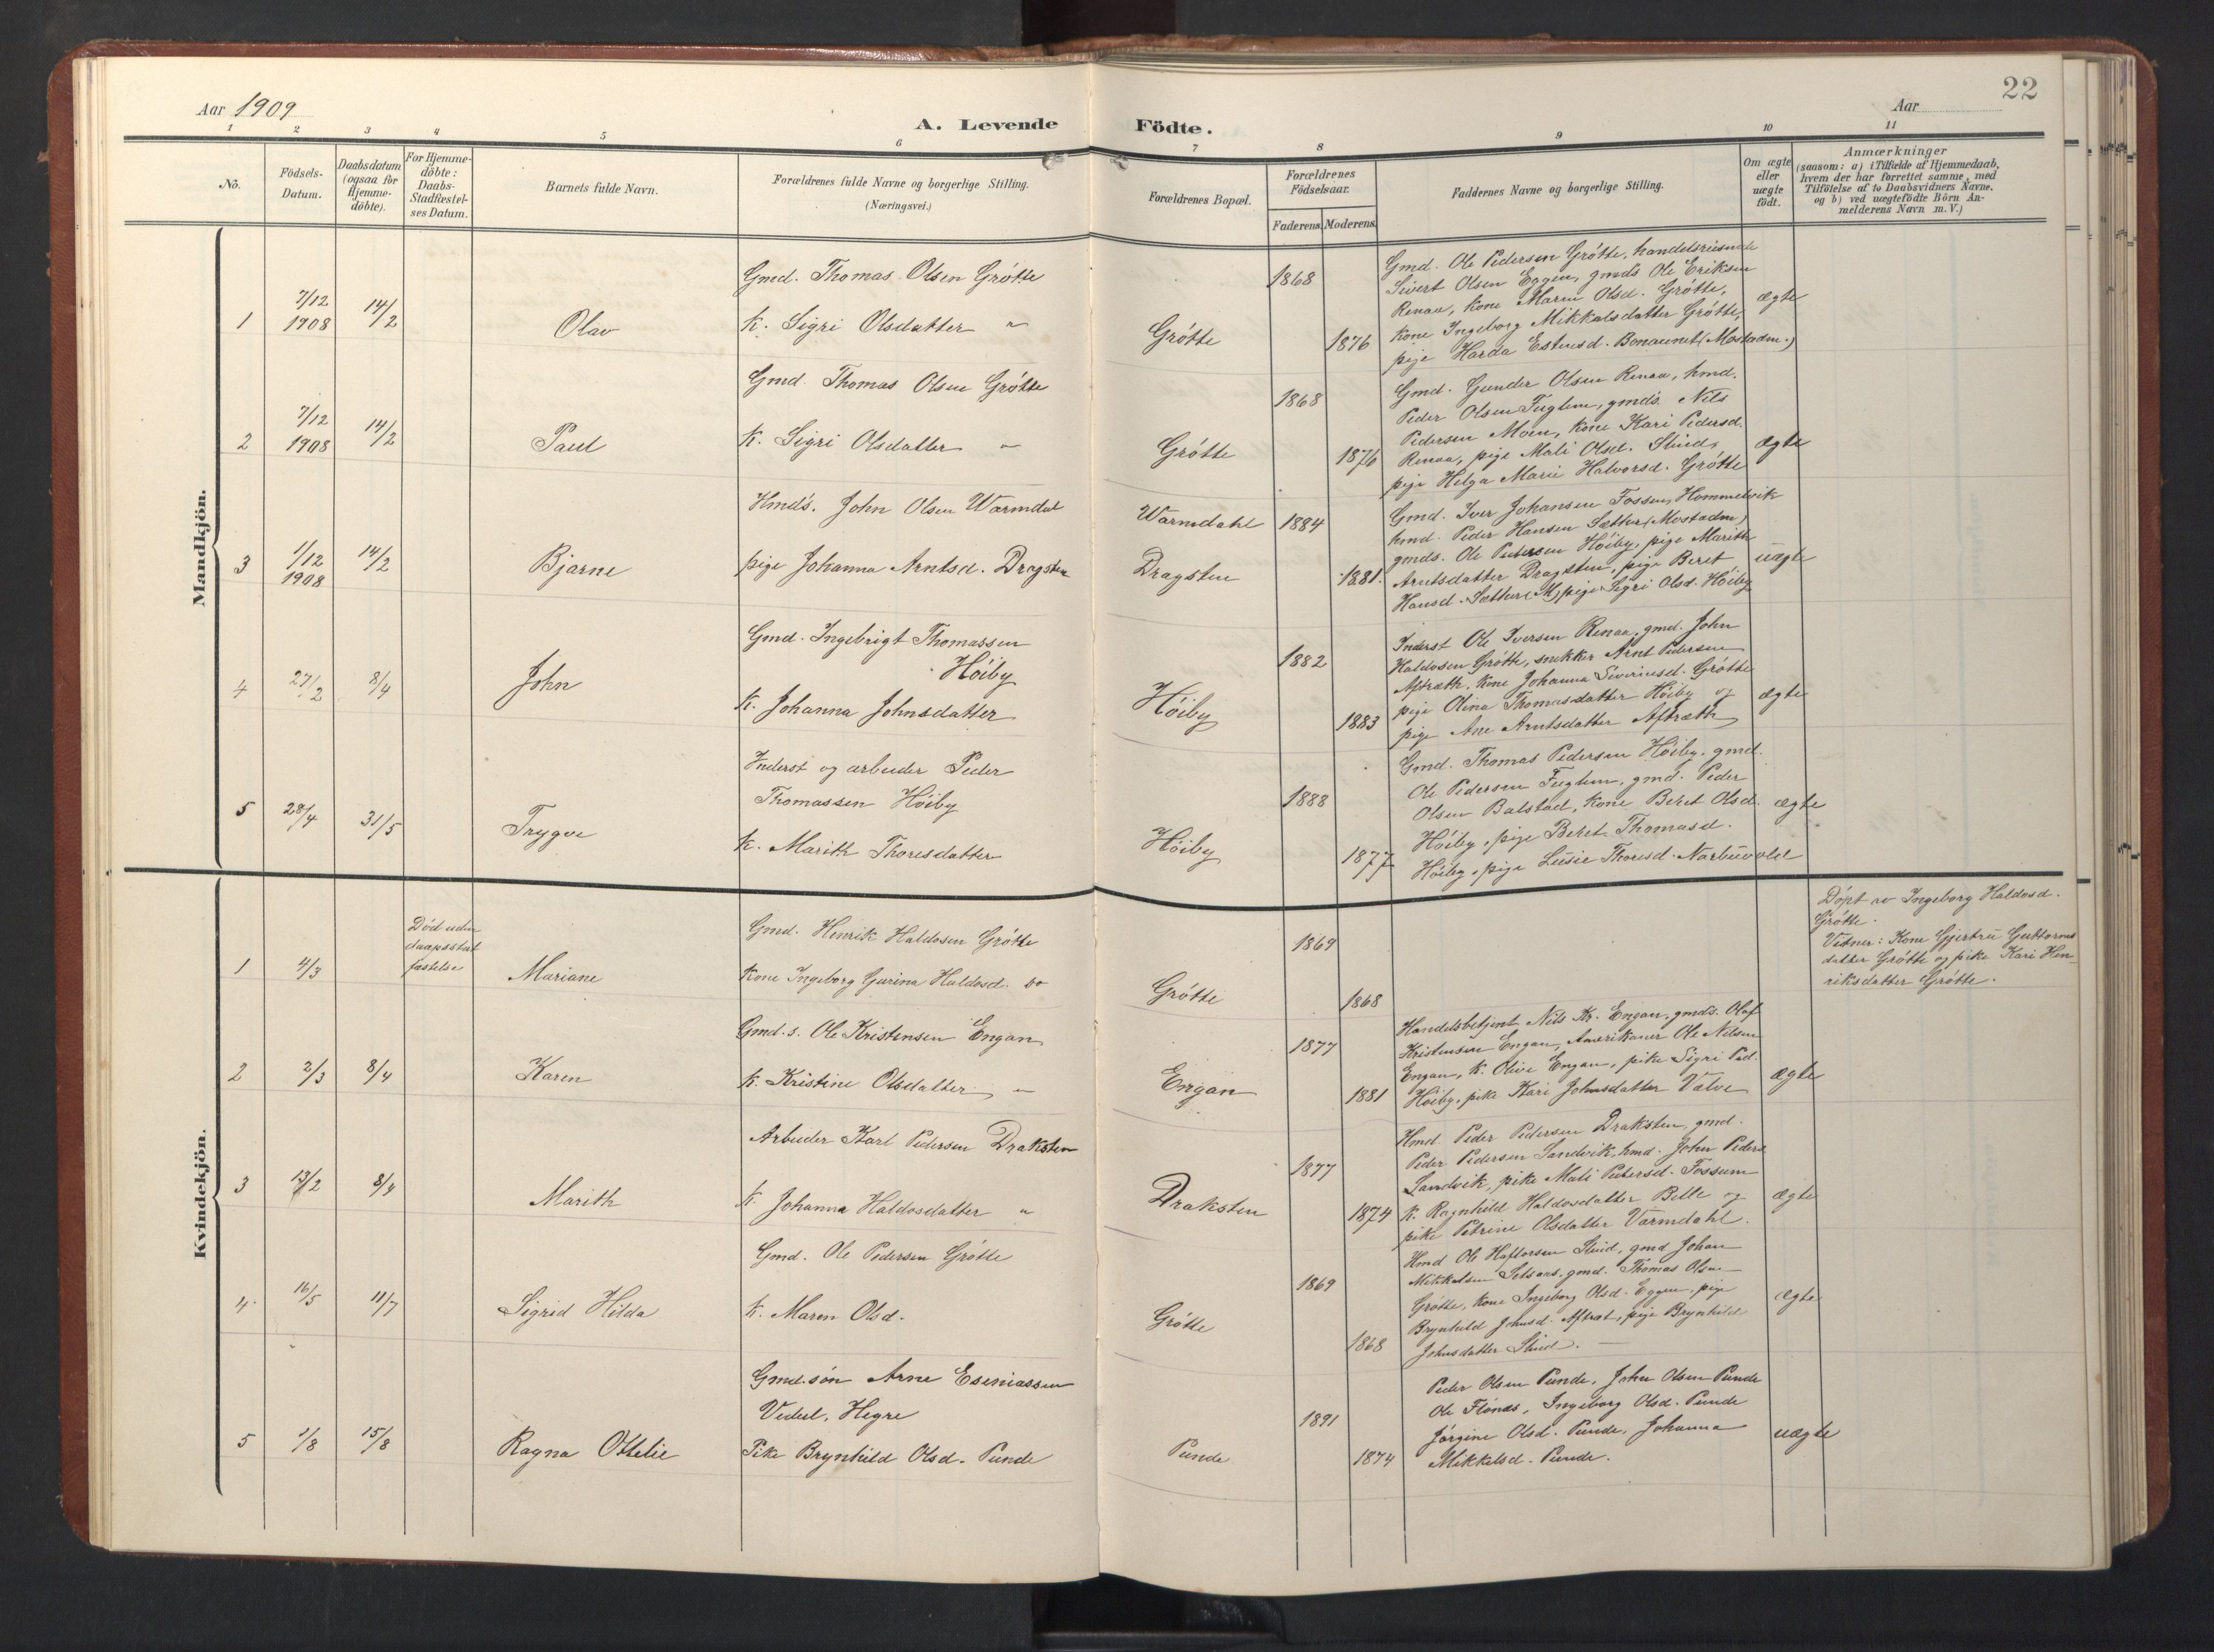 Aar 1909
A. Levende Födte.
Aar
22
1 2 3 4 5 6 7 8 9 10 11
No.
Födsels-
Datum.
Daabsdatum
(ogsaa for
Hjemme-
döbte).
For Hjemme-
döbte:
Daabs-
Stadfæstel-
ses Datum.
Barnets fulde Navn.
Forældrenes fulde Navne og borgerlige Stilling.
(Næringsvei.)
Forældrenes Bopæl.
Forældrenes
Födselsaar.
Faderens. Moderens.
Faddernes Navne og borgerlige Stilling.
Om ægte
eller
uægte
födt.
Anmærkninger
(saasom: a) i Tilfælde af Hjemmedaab,
hvem der har forrettet samme, med
Tilföielse af to Daabsvidners Navne.
og b) ved uægtefödte Börn An-
melderens Navn m. V.)
Mandkjön.
1
7/12
1908
14/2
Olav
Gmd. Thomas Olsen Grötte
K. Sigri Olsdatter "
Grötte
1868
1876
Gmd. Ole Pedersen Grötte, handelsreisende
Sivert Olsen Eggen, gmds Ole Eriksen
Renaa, kone Maren Olsd. Grötte,
kone Ingeborg Mikkalsdatter Grötte,
pige Harda Estensd. Bonaunet (Mostadm.)
ægte
2
7/12
1908
14/2
Paul
Gmd. Thomas Olsen Grötte
K. Sigri Olsdatter "
Grötte
1868
1876
Gmd. Gunder Olsen Renaa, hmd.
Peder Olsen Fuglem, gmds. Nils
Pedersen Moen, kone Kari Pedersd.
Renaa, pige Mali Olsd. Stud,
pige Helga Marie Halvorsd. Grötte
ægte
3
1/12
1908
14/2
Bjarne
Hmds. John Olsen Warmdal
pige Johanna Arntsd. Dragsten
Warmdahl
Dragsten
1884
1881.
Gmd. Iver Johansen Fossen, Hommelvik
hmd. Peder Hansen Sætter (Mostadm)
gmds. Ole Petersen Höiby, pige Marith
Arntsdatter Dragsten, pige Beret
Hansd. Sætter (M) pige Sigri Olsd. Höiby
uægte
4
27/2
8/4
John
Gmd. Ingebrigt Thomassen
Höiby
K. Johanna Johnsdatter
Höiby
1882
1883
Inderst Ole Iversen Renaa, gmd. John
Haldosen Grötte, snekker Arnt Pedersen
Aftræth, kone Johanna Siverinesd. Grötte
pige Olina Thomasdatter Höiby og
pige Ane Arntsdatter Aftræth
ægte
5
28/4
31/5
Trygve
Inderst og arbeider Peder
Thomassen Höiby
K. Marith Thoresdatter
Höiby
1888
1877
Gmd. Thomas Pedersen Höiby, gmd.
Ole Pedersen Fuglem, gmd. Peder
Olsen Balstad, kone Beret Olsd.
Höiby, pige Beret Thomasd.
Höiby, pige Lusie Thoresd. Narbuvold
ægte
Kvindekjön.
1
4/3
Död uden
daapsstad
fæstelse
Mariane
Gmd. Henrik Haldosen Grötte
Kone Ingeborg Gurina Haldosd. do
Grötte
1869
1868
Döpt av Ingeborg Haldosd.
Grötte.
Vitner: Kone Gjertru Guttorms
datter Grötte og pike Kari Hen-
riksdatter Grötte.
2
2/3
8/4
Karen
Gmd.s. Ole Kristensen Engan
K. Kristine Olsdatter "
Engan
1877
1881
Handelsbetjent Nils Kr. Engan, gmds. Olaf
Kristensen Engan, Amerikaner Ole Nilsen
Engan, K. Olive Engan, pike Sigri Ped.
Höiby, pike Kari Johnsdatter Valve
ægte
3
13/2
8/4
Marith
Arbeider Karl Pedersen Draksten
K. Johanna Haldosdatter "
Draksten
1877
1874
Hmd. Peder Pedersen Draksten, gmd.
Peder Pedersen Sandvik, hmd. John Peders
Sandvik, pike Mali Petersd. Fossum
K. Ragnhild Haldosdatter Belle og
pike Petrine Olsdatter Varmdahl.
ægte
4
16/5
11/7
Sigrid Hilda
Gmd. Ole Pedersen Grötte
K. Maren Olsd.
Grötte
1869
1868
Hmd Ole Haftorsen Stud, gmd Johan
Mikkalsen Selsaas, gmd. Thomas Olsen
Grötte, kone Ingeborg Olsd. Eggen, pige
Brynhild Johnsd. Aftræt, pige Brynhild
Johnsdatter Stud.
ægte
5
1/8
15/8
Ragna Ottelie
Gmd.sön Arne Eseniassen
Vedul, Hegre
Pike Brynhild Olsd. Punde
Punde
1891
1874
Peder Olsen Punde, John Olsen Punde
Ole Flönæs, Ingeborg Olsd. Punde
Jörgine Olsd. Punde, Johanna
Mikkelsd. Punde.
uægte